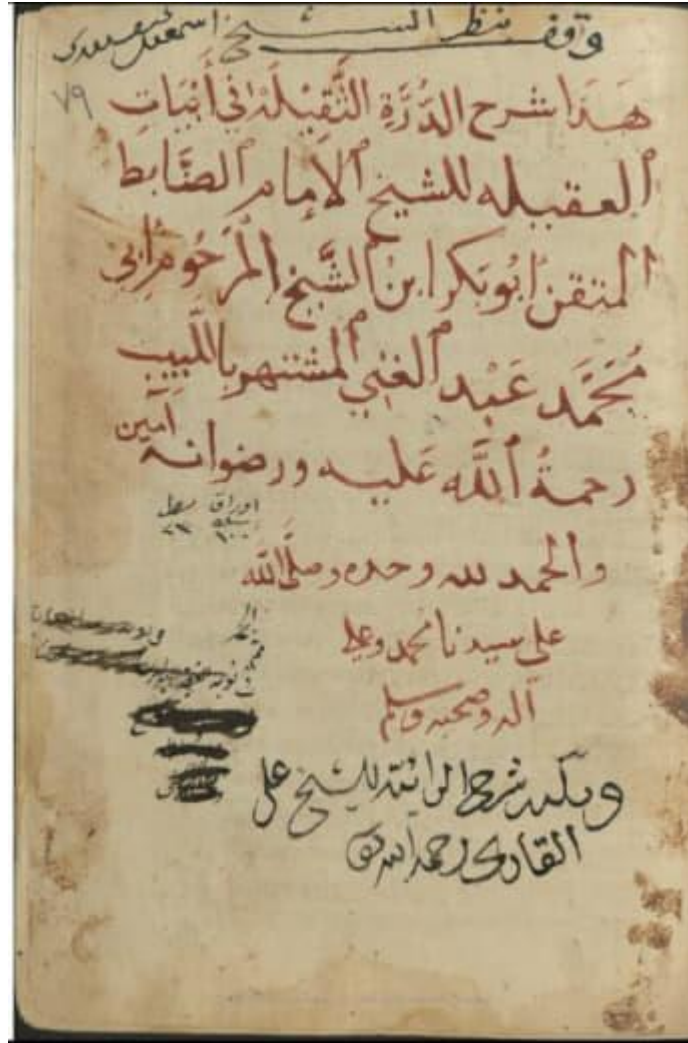 وقف بنظر الشيخ اسمعيل
٧٩
هَذَا شرح الدُّرَّةِ الثَّقِيلَة في أَبْيَاتِ
العقيله للشيخ الامام الضَّابط
المتقن ابو بكر ابن الشَّيخ المرحوم ابي
مُحَمَّد عَبْد الغني المشتهر باللَّبيب
رحمةُ اللَّه عَليه ورضوانه آمين
اوراق سطر
والحمد لله وحده وصلَّى الله
على سيدنا محمد وعلى
آله وصحبه وسلم
ويليه شرح الرائية للشيخ على
القارى رحمه الله